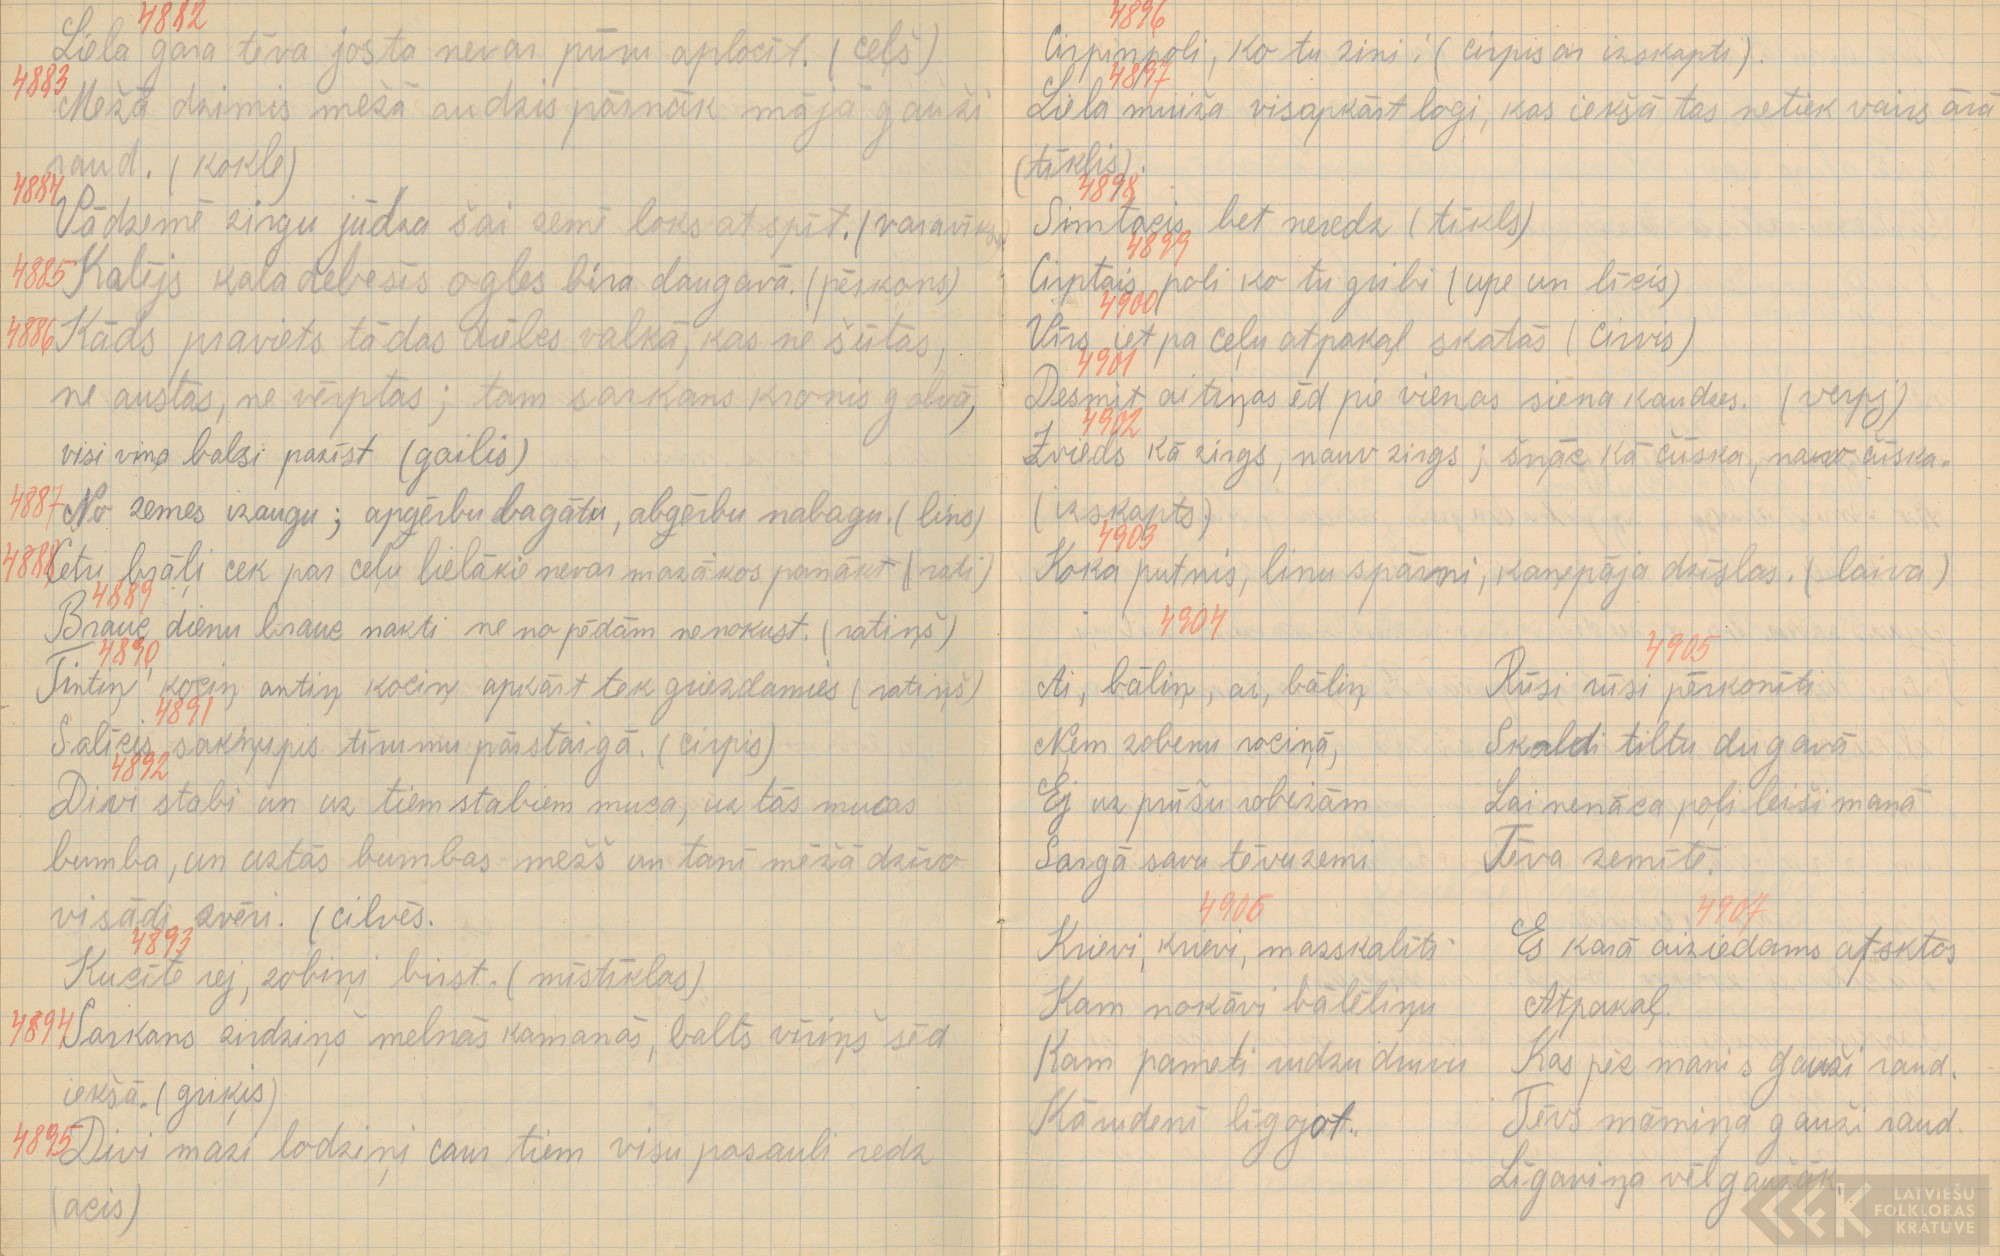 4882
Liela gara tēva josta nevar pūru aplocīt. (ceļš)
4883
Mežā dzimis mežā audzis pārnāk mājā gauži
raud. (kokle)
4884
Vādzemē zirgu jūdza šai zemē loks atspīt. (varavīksne)
4885 Kalējs kala debesīs ogles bira daugavā. (pērkons)
4886 Kāds praviets tādas drēbes valkā, kas ne šūtas,
ne austas, ne vērptas; tam sarkans kronis galvā,
visi viņa balsi pazīst (gailis)
4887 No zemes izaugu; apģērbu bagātu, abģērbu nabagu. (lins)
4888 Četri brāļi cek par ceļu lielākie nevar mazākos panākt (rati)
4889
Brauc dienu brauc nakti ne no pēdām nenokust. (ratiņš)
4890
Tintiņ kociņ antiņ kociņ apkārt tek griezdamies (ratiņš)
4891
Salīcis sakņupis tīrumu pārstaigā. (cirpis)
4892
Divi stabi un uz tiem stabiem muca, uz tās mucas
bumba, un uztās bumbas mežš un tanī mežā dzīvo
visādi zvēri. (cilvēs.
4893
Kucīte rej, zobiņi birst. (mīstīklas)
4894 Sarkans zirdziņš melnās kamanās, balts vīriņš sēd
iekšā. (griķis)
4895 Divi mazi lodziņi caur tiem visu pasauli redz
(acis)
4896
Cirpinpoli, ko tu zini! (cirpis ar izskapti).
4897
Liela muiža visapkārt logi, kas iekšā tas netiek vairs ārā
(tīklis).
4898
Simtacis, bet neredz (tīkls)
4899
Cirptais poli ko tu gribi (upe un līcis)
4900
Vīrs iet pa ceļu atpakaļ skatās (cirvis)
4901
Desmit aitiņas ēd pie vienas siena kaudzes. (verpj)
4902
Zviedz kā zirgs, nauv zirgs; šņāc kā čūska, nauv čūska.
(izskapts)
4903
Koka putnis, linu spārni, kaņepāja dzīslas. (laiva)
4904
Ai, bāliņ, ai, bāliņ
Ņem zobenu rociņā,
Ej uz prūšu robežām
Sargā savu tēvuzemi
4905
Rūsi rūsi pērkonīti
Skaldi tiltu dugavā
Lai nenāca poļi leiši manā
Tēva zemītē.
4906
Krievi, krievi, mazskalīti
Kam nokāvi bālēliņu
Kam pameti rudzu druvu
Kā rudenī līgojot.
4907
Es karā aiziedams atsktos
Atpakaļ.
Kas pēc manis gauži raud.
Tēvs māmiņa gauži raud.
Līgaviņa vēl gaužāk.
LATVIEŠU
FOLKLORAS
KRĀTUVE